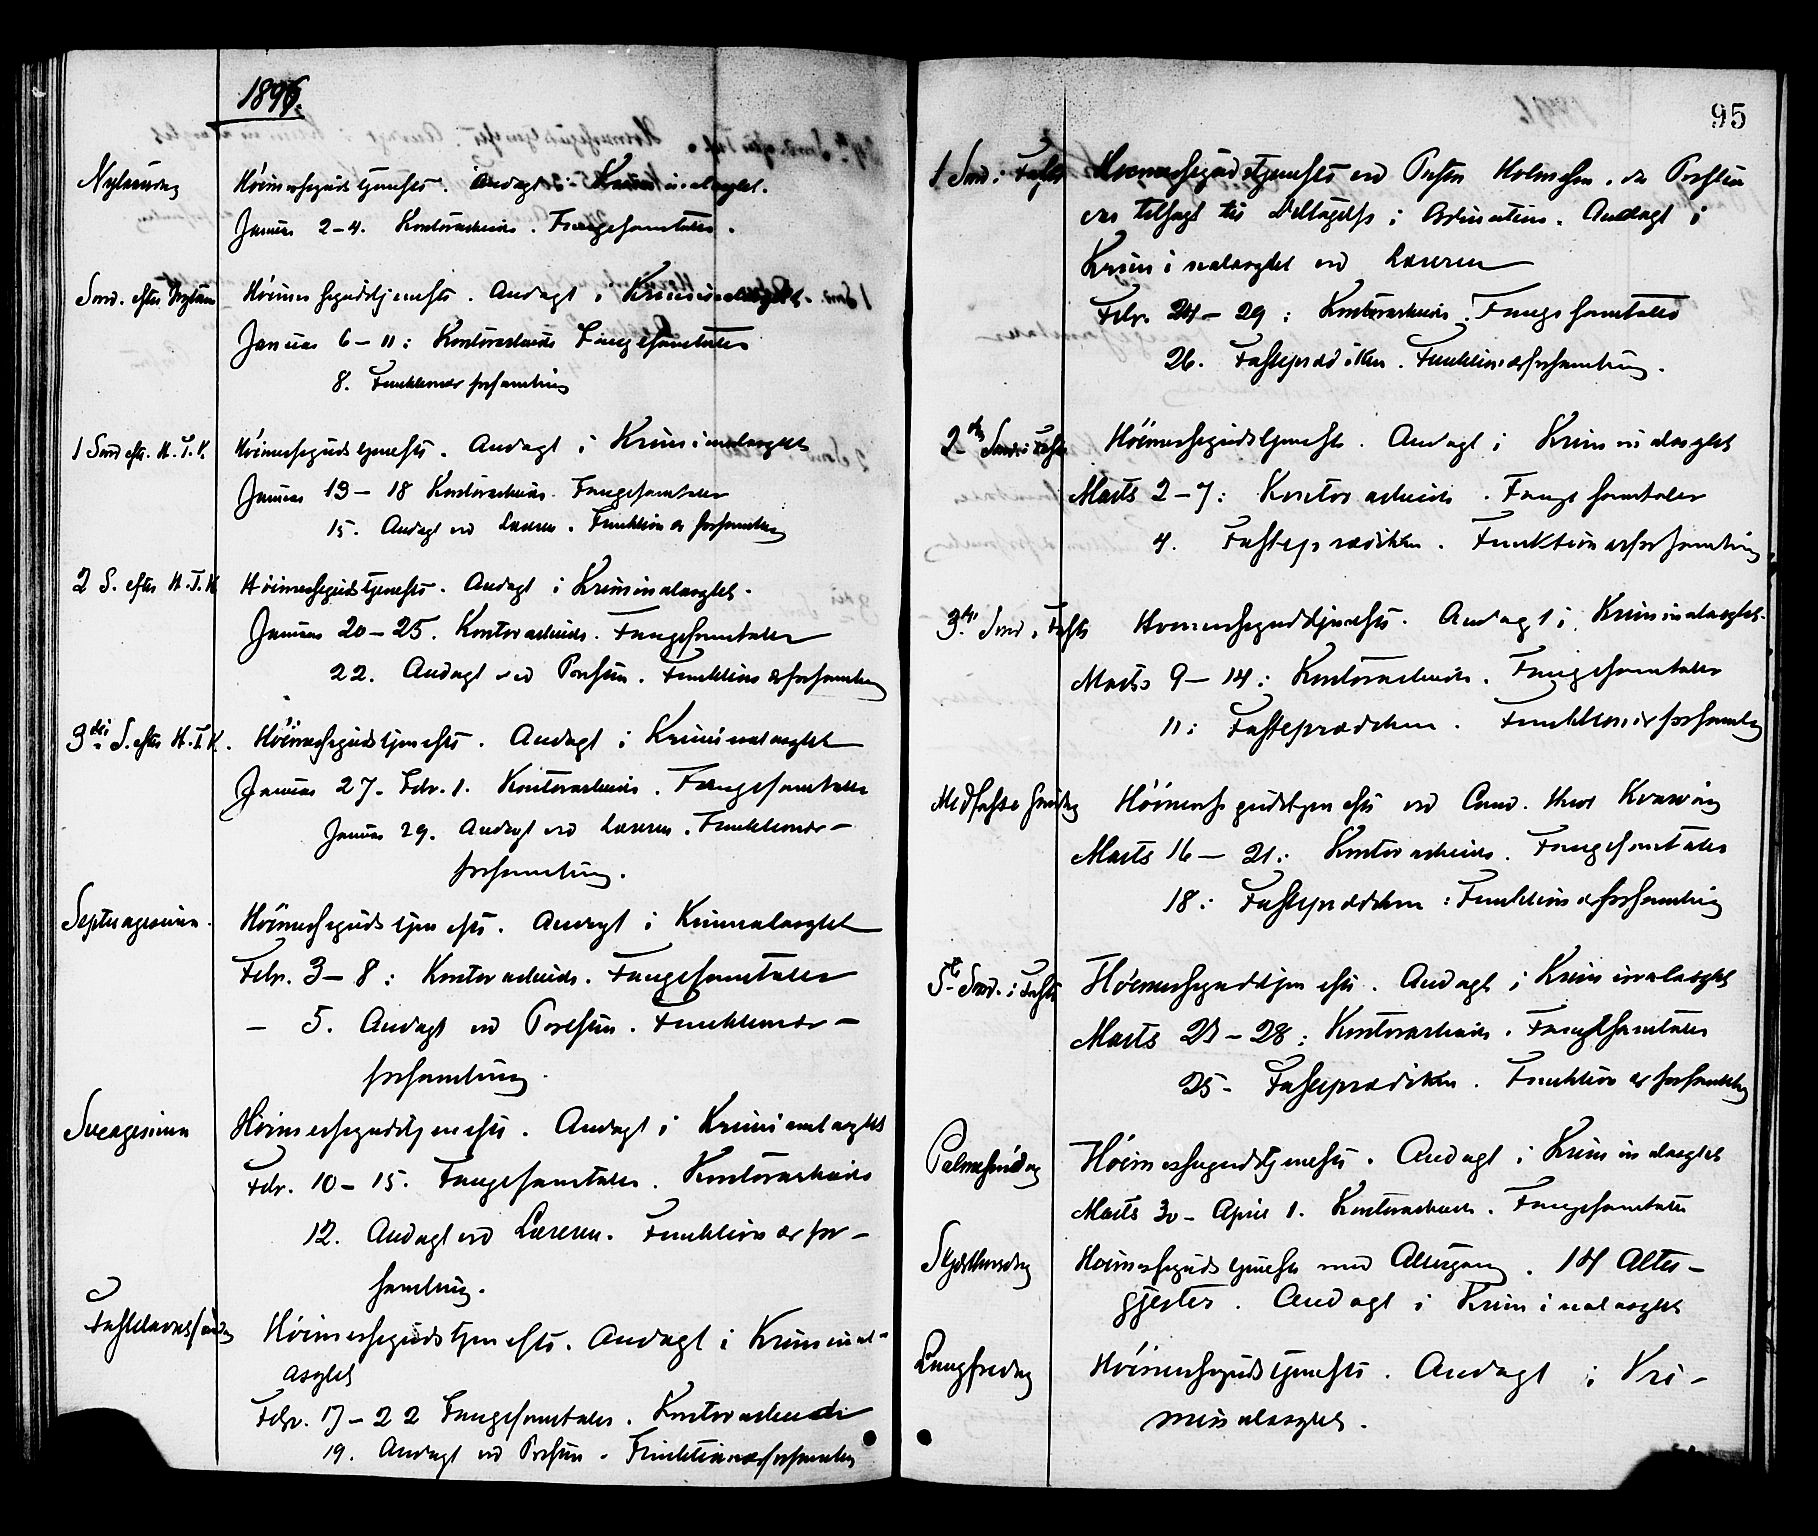 1896.
Nytaarsdag Høimessegudstjeneste. Andagt i Kriminalasylet.
Januar 2-4. Kontorarbeide. Fangesamtaler.
Sønd. efter Nytaar Høimessegudstjeneste. Andagt i Kriminalasylet.
Januar 6-11: Kontorarbeide Fangesamtaler
8. Funktionærforsamling
1 Sønd eft. H. T. K. Høimessegudstjeneste. Andagt i Kriminalasylet
Januar 13-18 Kontorarbeide. Fangesamtaler
15. Andagt ved Læreren. Funktionærforsamling
2 S. efter H. T. K Høimessegudstjeneste. Andagt i Kriminalasylet.
Januar 20-25. Kontorarbeide. Fangesamtaler
22. Andagt ved Presten. Funktionærforsamling
3die S. efter H. T. K. Høimessegudstjeneste. Andagt i Kriminalasylet
Januar 27. Febr. 1. Kontorarbeide. Fangesamtaler
Januar 29. Andagt ved Læreren. Funktionær-
forsamling.
Septuagesima. Høimessegudstjeneste. Andagt i Kriminalasylet
Febr. 3-8: Kontorarbeide. Fangesamtaler
- 5. Andagt ved Presten. Funktionær-
forsamling.
Sexagesima Høimessegudstjeneste. Andagt i Kriminalasylet
Febr. 10-15. Fangesamtaler. Kontorarbeide
12. Andagt ved Læreren. Funktionærfor-
samling.
Fastelavnssøndag Høimessegudstjeneste. Andagt i Kriminal-
asylet
Febr. 17-22 Fangesamtaler. Kontorarbeide
19. Andagt ved Presten. Funktionærforsamling
95
1 Sønd. i Faste Høimessegudstjeneste ved Presten Holmsen, da Presten
var tilsagt til Deltagelse i Ordination. Andagt i
Kriminalasylet ved Læreren
Febr. 24-29: Kontorarbeide. Fangesamtaler
26. Fasteprædiken. Funktionærforsamling.
2den Sønd. i Faste Høimessegudstjeneste. Andagt i Kriminalasylet
Marts 2-7: Kontorarbeide. Fangesamtaler
4. Fasteprædiken. Funktionærforsamling
3die Sønd. i Faste Høimessegudstjeneste. Andagt i Kriminalasylet.
Marts 9-14: Kontorarbeide. Fangesamtaler
11: Fasteprædiken. Funktionærforsamling
Midfaste søndag Høimessegudstjeneste ved Cand. theol
Marts 16-21: Kontorarbeide. Fangesamtaler
18: Fasteprædiken: Funktionærforsamling
5te Sønd. i Faste Høimessegudstjeneste. Andagt i Kriminalasylet
Marts 23-28: Kontorarbeide. Fangesamtaler
25- Fasteprædiken. Funktionærforsamling
Palmesøndag Høimessegudstjeneste. Andagt i Kriminalasylet
Marts 30- April 1. Kontorarbeide. Fangesamtaler
Skjærthorsdag Høimessegudstjeneste med Altergang. 14 Alter-
gjester. Andagt i Kriminalasylet
Langfredag Høimessegudstjeneste. Andagt i Kri-
minalasylet.